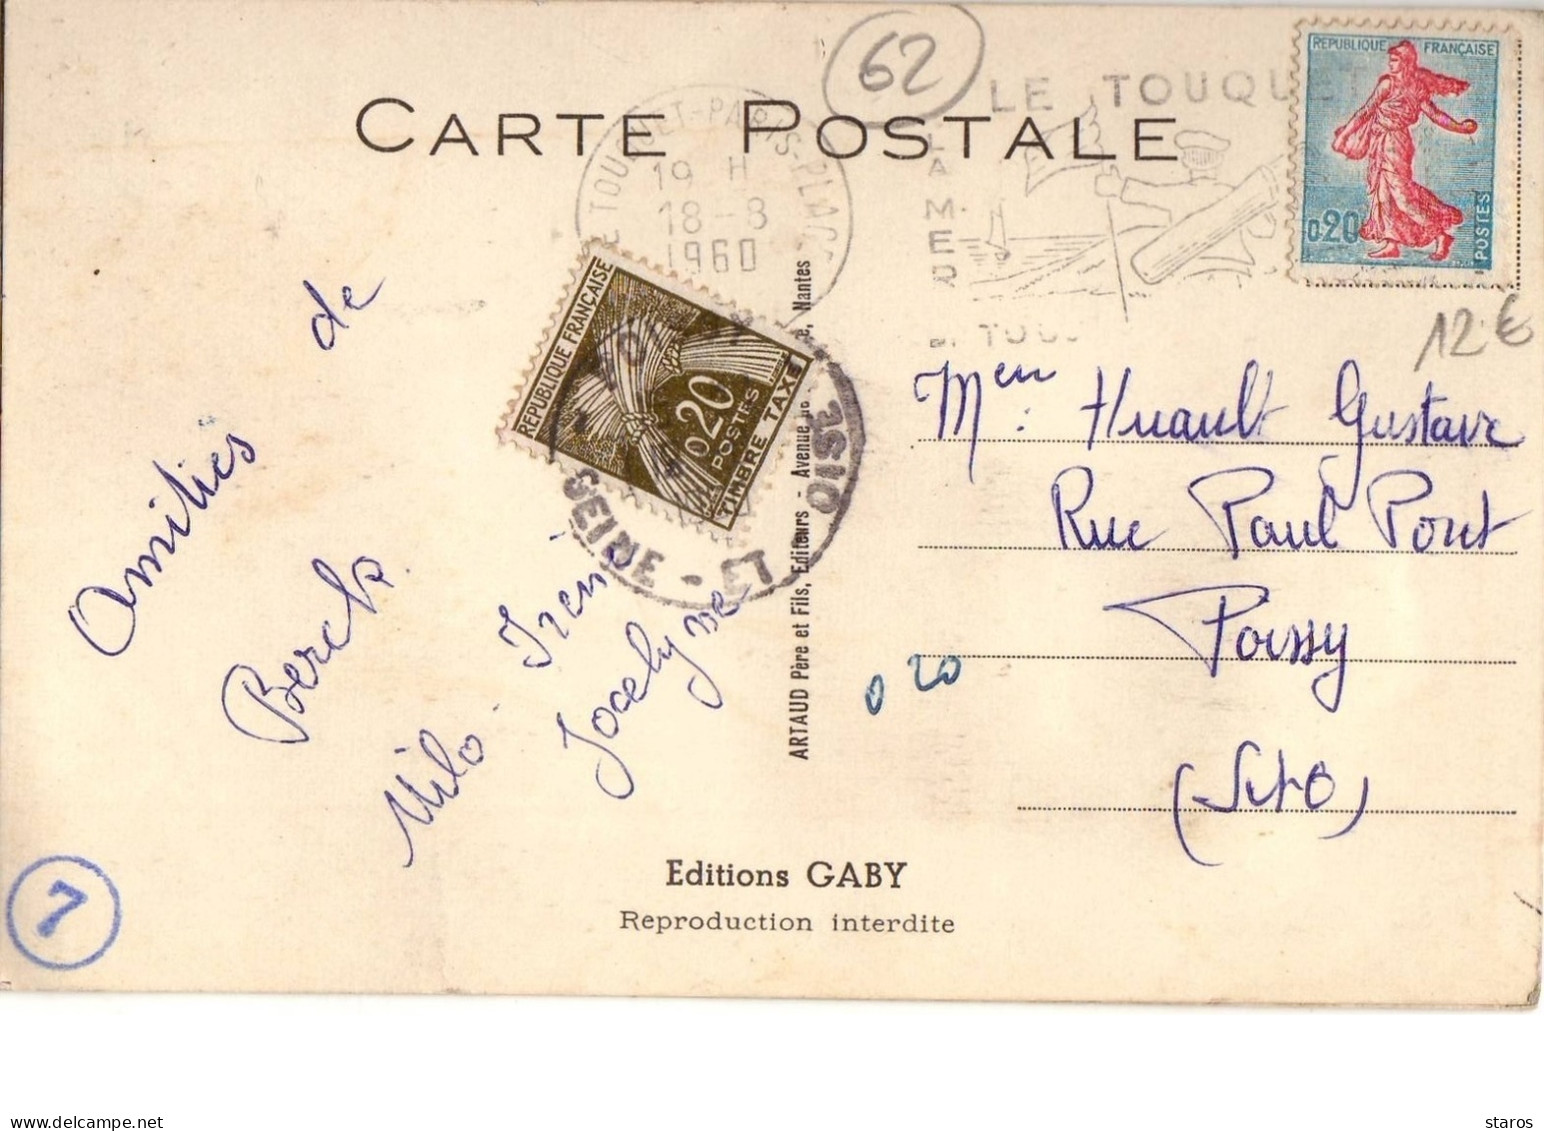 CARTE POSTALE
62
LE TOUQUET-PARIS-PLAGE
19 H
18-8
1960
LE TOUQUET
LA
MER
REPUBLIQUE FRANÇAISE
0,20
POSTES
12 €
REPUBLIQUE FRANÇAISE
0,20
POSTES
TIMBRE TAXE
SEINE-ET-OISE
Amitiés de
Berck.
Milo - Irène
Jocelyne
ARTAUD Père et Fils, Editeurs - Avenue de Nantes
Huault Gustave
Rue Paul Pont
Poissy
(S et O)
0 20
7
Editions GABY
Reproduction interdite
staros